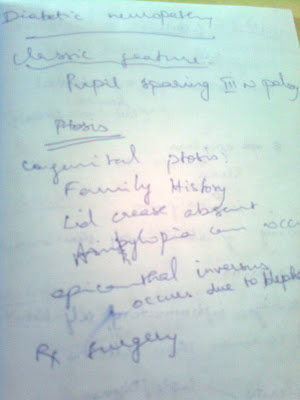 Diabetic neuropathy
Classic feature:
Pupil sparing III N palsy
Ptosis
Congenital ptosis:
Family History
Lid crease absent
Amblyopia can occ
epicanthal inversus
occurs due to bleph
Rx Surgery